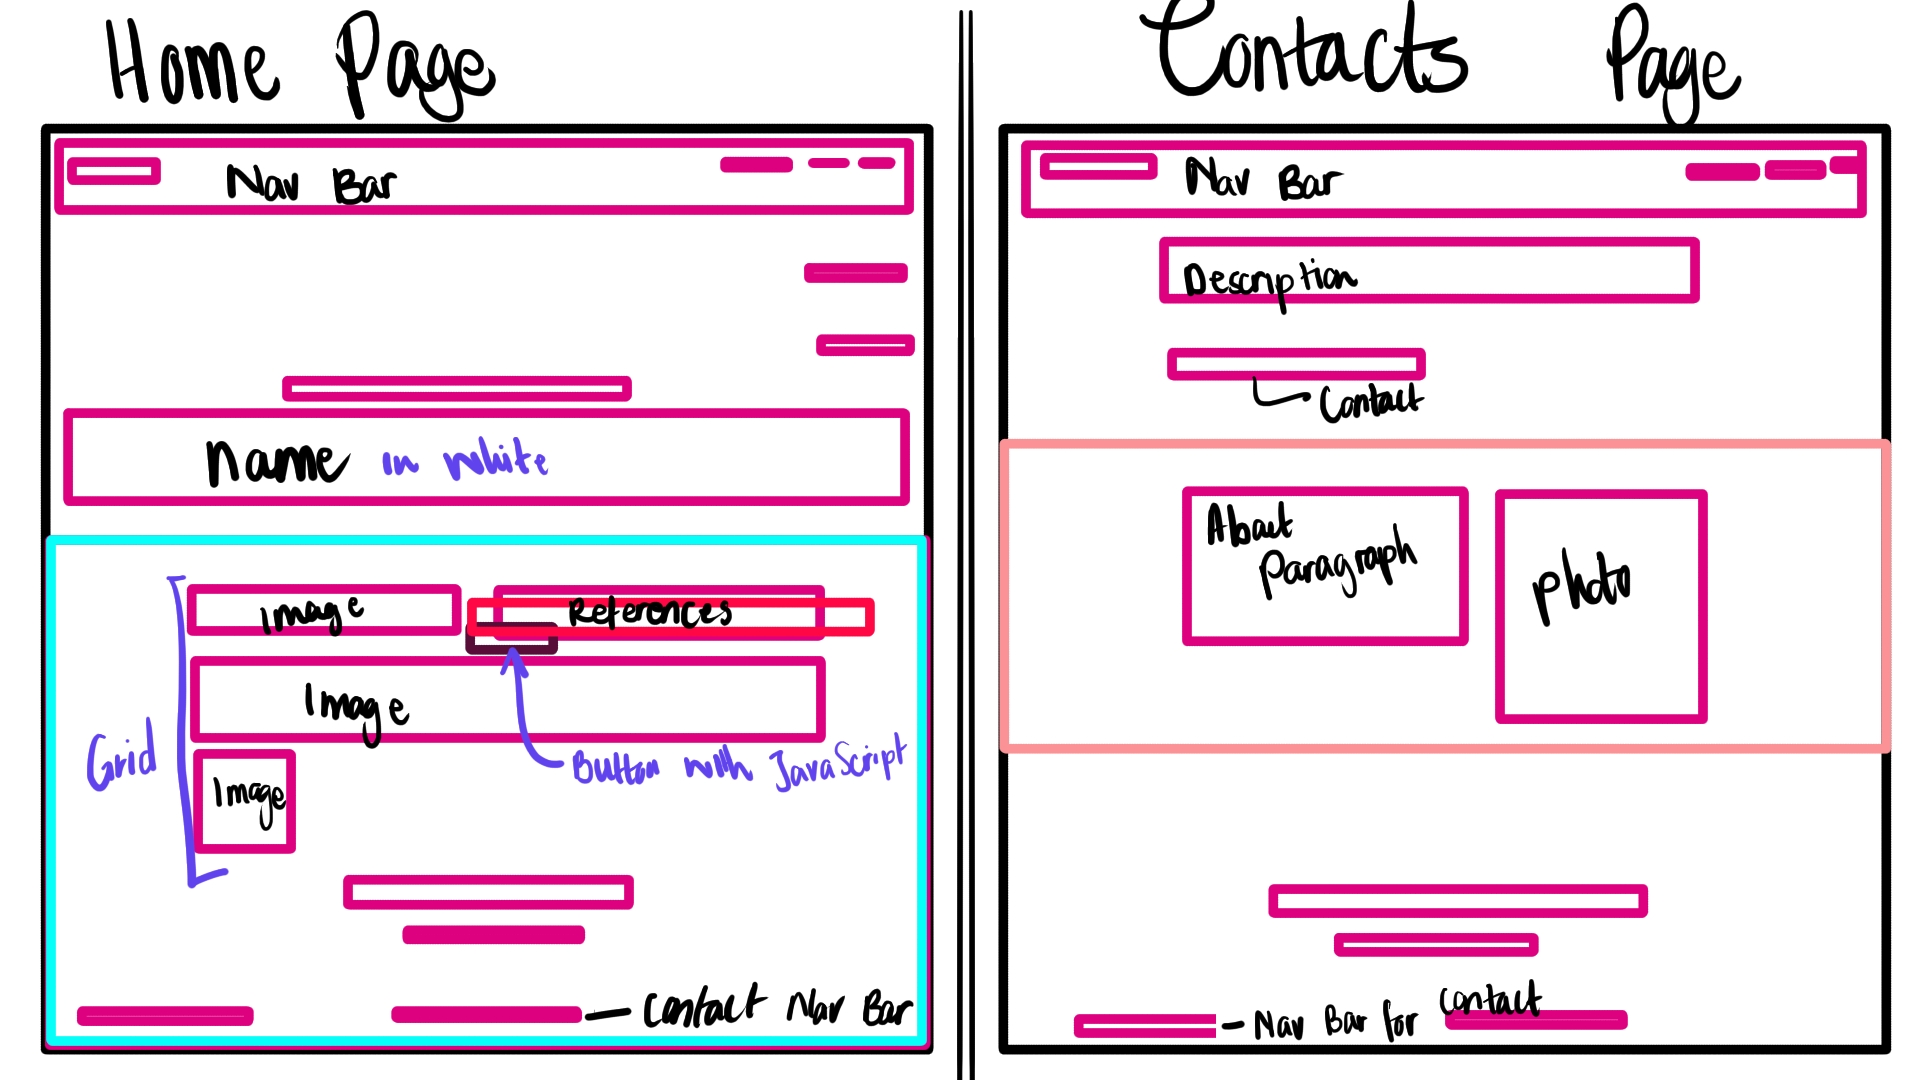 Home Page
Nav Bar
Name in white
Image
References
Image
Grid
Button with JavaScript
Image
Contact Nav Bar
Contacts Page
Nav Bar
Description
Contact
About
Paragraph
Photo
Nav Bar for Contact